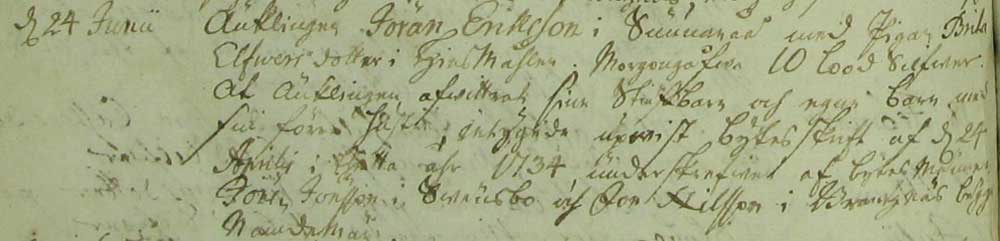 d 24 Junii Änklingen Jöran Ericsson i Sunnanåå med Pigan Brita
Elfwers dotter i Giersmåhlen. Morgongåfwa 10 lood Silfwer.
At Änklingen afwittrat sine Stiufbarn och egne barn med
sin förra hustru, intygade upwist bytes skrift af d 24
Aprilis i detta åhr 1734 underskrefwen af bytes Männen
Jonsson i Swensbo och Jon Nilsson i
Nämdemän